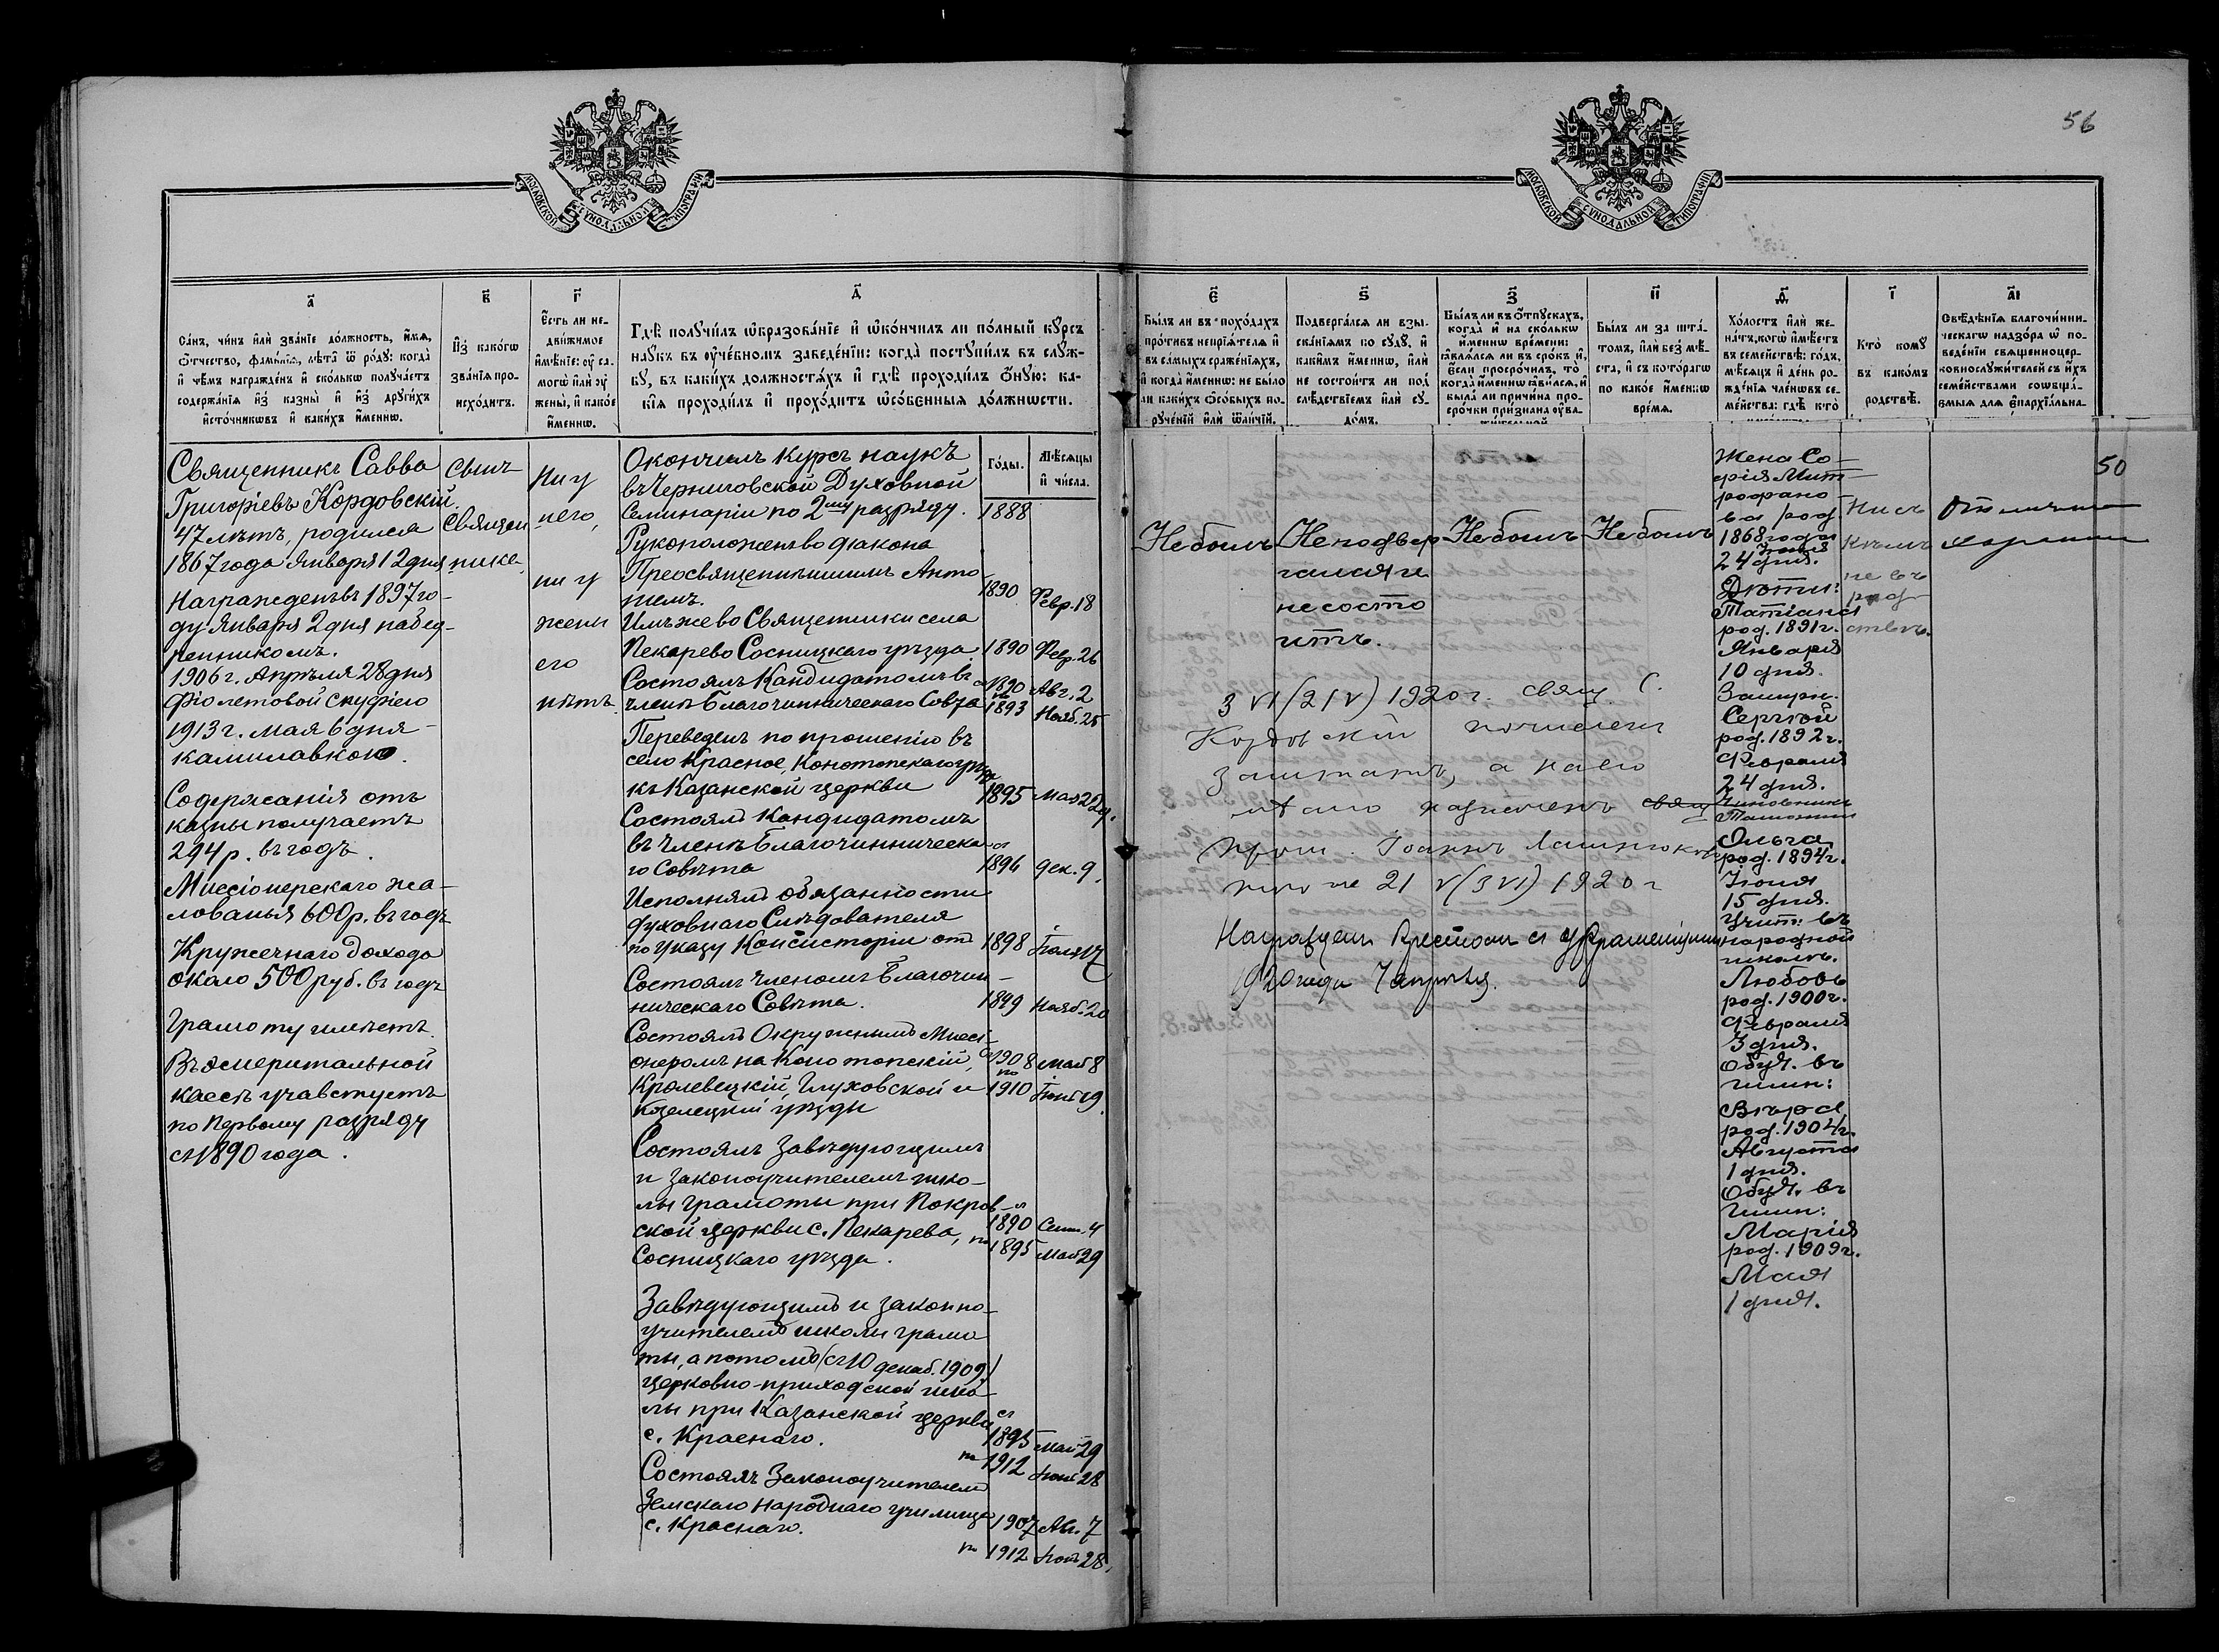 56
МОСКОВСКОЙ СУНОДАЛЬНОЙ ТИПОГРАФІИ
МОСКОВСКОЙ СУНОДАЛЬНОЙ ТИПОГРАФІИ
а҃
Са́нъ, чи́нъ и҆лѝ зва́нїе до́лжность, и҆́мѧ,
ѻ҆́тчество, фами́лїѧ, лѣ́та ѿ ро́ду: когда̀
и҆ чѣ́мъ награжде́нъ и҆ ско́лькѡ получа́етъ
содержа́нїѧ и҆з̾ казны̀ и҆ и҆з̾ други́хъ
и҆сто́чникѡвъ и҆ каки́хъ и҆́меннѡ.
в҃
И҆з̾ како́гѡ
зва́нїѧ про-
исхо́дитъ.
г҃
Є҆́сть ли не-
дви́жимое
и҆мѣ́нїе: оу҆ са-
могѡ̀ и҆лѝ оу҆
жены̀, и҆ како́е
и҆́меннѡ.
д҃
Гдѣ̀ получи́лъ ѡ҆бразова́нїе и҆ ѡ҆ко́нчилъ ли по́лный кꙋ́рсъ
наꙋ́къ въ оу҆че́бномъ заведе́нїи: когда̀ постꙋпи́лъ въ слꙋ́ж-
бꙋ, въ каки́хъ должностѧ́хъ и҆ гдѣ̀ проходи́лъ ѻ҆́нꙋю: ка-
кі́ѧ проходи́лъ и҆ прохо́дитъ ѡ҆со́бенныѧ до́лжнѡсти.
Го́ды.
Мѣ́сѧцы
и҆ чи́сла.
Священникъ Савва
Григоріевъ Кордовскій.
47 лѣтъ, родился
1867 года Января 12 дня
Награжденъ въ 1897 го-
ду Января 2 дня набед-
ренникомъ.
1906 г. Апрѣля 28 дня
фіолетовой скуфіею
1913 г. мая 6 дня –
камилавкою.
Содержанія отъ
казны получаетъ
294 р. въ годъ.
Миссіонерскаго жа-
лованья 600 р. въ годъ
Кружечнаго дохода
около 500 руб. въ годъ
Грамоту имѣетъ.
Въ эмеритальной
кассѣ учавствуетъ
по Первому разряду
съ 1890 года.
Сынъ
Священ
ника
Ни у
него,
ни у
жены
его
нѣтъ.
Окончилъ курсъ наукъ
въ Черниговской Духовной
Семинаріи по 2му разряду. 1888
Рукоположенъ во діакона
Преосвященнѣйшимъ Анто
ніемъ. 1890 Февр. 18
Имъ же во Священники села
Пекарево Сосницкаго уѣзда. 1890 Февр. 26
Состоялъ Кандидатомъ въ съ 1890 Авг. 2
члены Благочинническаго Совѣта по 1893 Нояб. 25
Переведенъ по прошенію въ
село Красное, Конотопскаго уѣзда
къ Казанской церкви 1895 Мая 29.
Состоялъ Кандидатомъ
въ члены Благочинническа съ
го Совѣта 1896 дек. 9.
Исполнялъ обязанности
духовнаго Слѣдователя
по указу Консисторіи отъ 1898 Іюля 17
Состоялъ членомъ Благочин-
ническаго Совѣта. 1899 Нояб. 20
Состоялъ Окружнымъ Миссі-
онеромъ на Конотопскій, съ 1908 май 8
Кролевецкій, Глуховской и по 1910 Іюнь 19.
Козелецкій уѣзды
Состоялъ Завѣдующимъ
и законоучителемъ шко-
лы грамоты при Покров- съ
ской церкви с. Пекарева, 1890 Сент. 4
Сосницкаго уѣзда. по 1895 май 29
Завѣдующимъ и законно-
учителемъ школы грамо
ты, а потомъ (съ 10 декаб. 1909)
церковно-приходской шко
лы при Казанской церкви съ
с. Краснаго. 1895 май 29
по 1912 Іюнь 28
Состоялъ Законоучителемъ
Земскаго Народнаго училища 1907 Авг. 7
с. Краснаго.
по 1912 Іюнь 28.
є҃
Бы́лъ ли въ похо́дахъ
про́тивъ непрїѧ́телѧ и҆
въ са́мыхъ сраже́нїѧхъ,
и҆ когда̀ и҆́меннѡ: не бы́ло
ли каки́хъ ѻ҆со́быхъ по-
рꙋче́нїй и҆лѝ ѿли́чїй.
ѕ҃
Подверга́лсѧ ли взы-
ска́нїѧмъ по сꙋдꙋ̀, и҆
каки́мъ и҆́меннѡ, и҆лѝ
не состои́тъ ли под̾
слѣ́дствїемъ и҆лѝ сꙋ-
до́мъ.
з҃
Бы́лъ ли въ ѿпꙋска́хъ,
когда̀ и҆ на ско́лькѡ
и҆́меннѡ вре́мени:
ꙗ҆влѧ́лсѧ ли въ сро́къ и҆,
є҆́сли просро́чилъ, то̀
когда̀ и҆́меннѡ ꙗ҆ви́лсѧ, и҆
была̀ ли причи́на про-
сро́чки при́знана оу҆ва-
и҃
Бы́лъ ли за шта́-
томъ, и҆лѝ без̾ мѣ́-
ста, и҆ съ кото́рагѡ
по како́е и҆́меннѡ
вре́мѧ.
ѳ҃
Хо́лостъ и҆лѝ же-
на́тъ, когѡ̀ и҆мѣ́етъ
въ семе́йствѣ: го́дъ,
мѣ́сѧцъ и҆ де́нь ро-
жде́нїѧ чле́нѡвъ се-
ме́йства: гдѣ̀ кто̀
і҃
Кто̀ комꙋ̀
въ како́мъ
родствѣ̀.
а҃і
Свѣ́дѣнїѧ благочи́нни-
ческагѡ надзо́ра ѡ҆ по-
веде́нїи свѧщенноцер-
ковнослꙋжи́телей съ и҆́хъ
семе́йствами соѡбща́-
ємыѧ для є҆парxїа́льна-
Не былъ
Не подвер
гался и
не состо
итъ.
Не былъ
Не былъ
Жена Со-
фія Мит-
рофано-
ва род.
1868 года
Іюня
24 дня.
Дѣти:
Татіана
род. 1891 г.
Января
10 дня.
Замуж.
Сергѣй
род. 1892 г.
Февраля
24 дня.
Чиновникъ
Таможни
Ольга
род. 1894 г.
Іюля
15 дня.
Учит: въ
народной
школѣ.
Любовь
род. 1900 г.
Февраля
3 дня.
Обуч. въ
гимн:
Вѣра
род. 1904 г.
Августа
1 дня.
Обуч. въ
гимн:
Марія
род. 1909 г.
Мая
1 дня.
Ни съ
кѣмъ
не въ
род-
ствѣ.
50
Отлично
хорошаго
3 VI (21 V) 1920 г. свящ. С.
Кордовскій почислен
заштатъ, а на его
мѣсто назначенъ свящ
прот. Іоаннъ
21 V (3 VI) 1920 г
Награжден Крестом с украшеніями
1920 года 7 апрѣля.